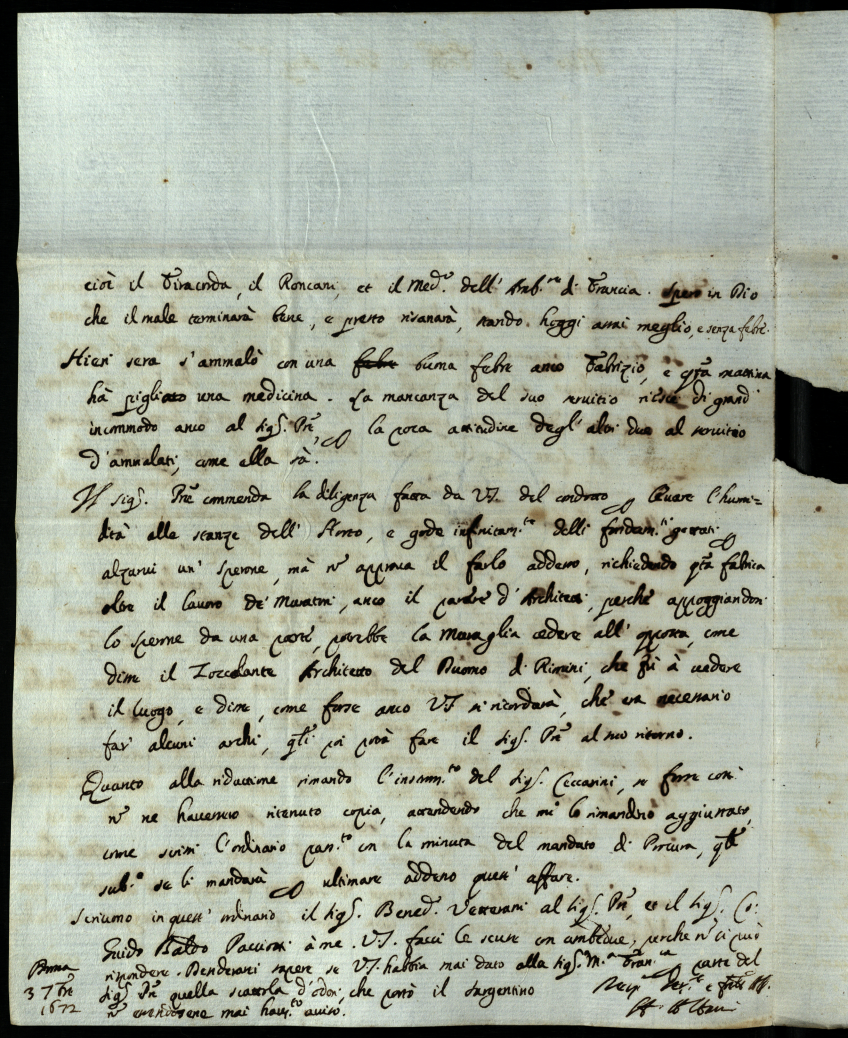 cioè il Tiracorda, il Roncani, et il Med.º dell' Amb.re di Francia. Spero in Dio
che il male terminarà bene, e presto risanarà, stando hoggi assai meglio, e senza febre.
Hieri sera s'ammalò con una febre buona febre anco Fabrizio, e q.ta mattina
hà pigliato una medicina. La mancanza del suo servitio riesce di grand'
incommodo anco al Sig.r Pre, p la poca attitudine degl' altri due al servitio
d'ammalati, come ella sà.
Il Sig.r Pre commenda la diligenza fatta da VS. del condotto p levare l'humi-
dità alle stanze dell' Horto, e gode infinitam.te delli fondam.ti gettati p
alzarvi un' sperone, mà nõ approva il farlo adesso, richiedendo q.ta fabrica
oltre il lavoro de' Muratori, anco il parere d'Architetti, perche appoggiandosi
lo sperone da una parte, potrebbe la Muraglia cedere all' opposta, come
disse il Zoccolante Architetto del Duomo di Rimini, che fù à vedere
il luogo, e disse, come forse anco VS si ricordarà, che era necessario
far' alcuni archi, q.li poi potrà fare il Sig.r Pre al suo ritorno.
Quanto alla riduttione rimando l'instrum.to del Sig.r Ceccarini, se forse costì
nõ ne havessero ritenuto copia, attendendo che mi lo rimandino aggiustato,
come scrissi l'ordinario pass.to con la minuta del mandato di Procura, q.le
sub.º se li mandarà p ultimare adesso quest' affare.
Scrivono in quest' ordinario il Sig.r Bened.º Veterani al Sig.r Pre, et il Sig.r Co:
Guido Baldo Pacciotti à me. VS. facci le scuse con ambedue, perche nõ si può
rispondere. Desiderarei sapere se VS. habbia mai dato alla Sig.ra M.a Fran.ca p parte del
Sig.r Pre quella scattola d'odori, che portò il Sargentino
nõ havendosene mai hauto aviso.
Roma
3 7bre
1672